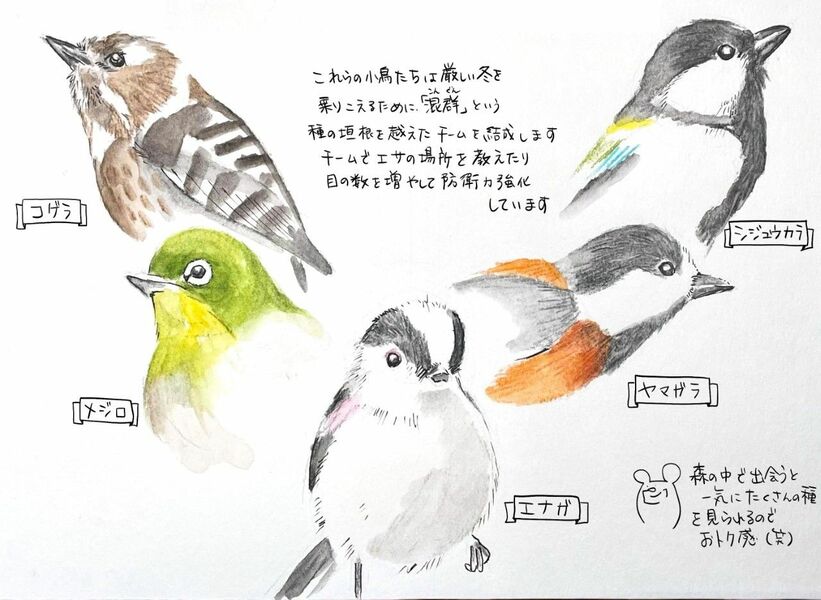 これらの小鳥たちは厳しい冬を
乗りこえるために、「混群」という
こんぐん
種の垣根を越えたチームを結成します
チームでエサの場所を教えたり
目の数を増やして防衛力強化
しています
コゲラ
シジュウカラ
メジロ
ヤマガラ
エナガ
森の中で出会うと
一気にたくさんの種
を見られるので
おトク感(笑)